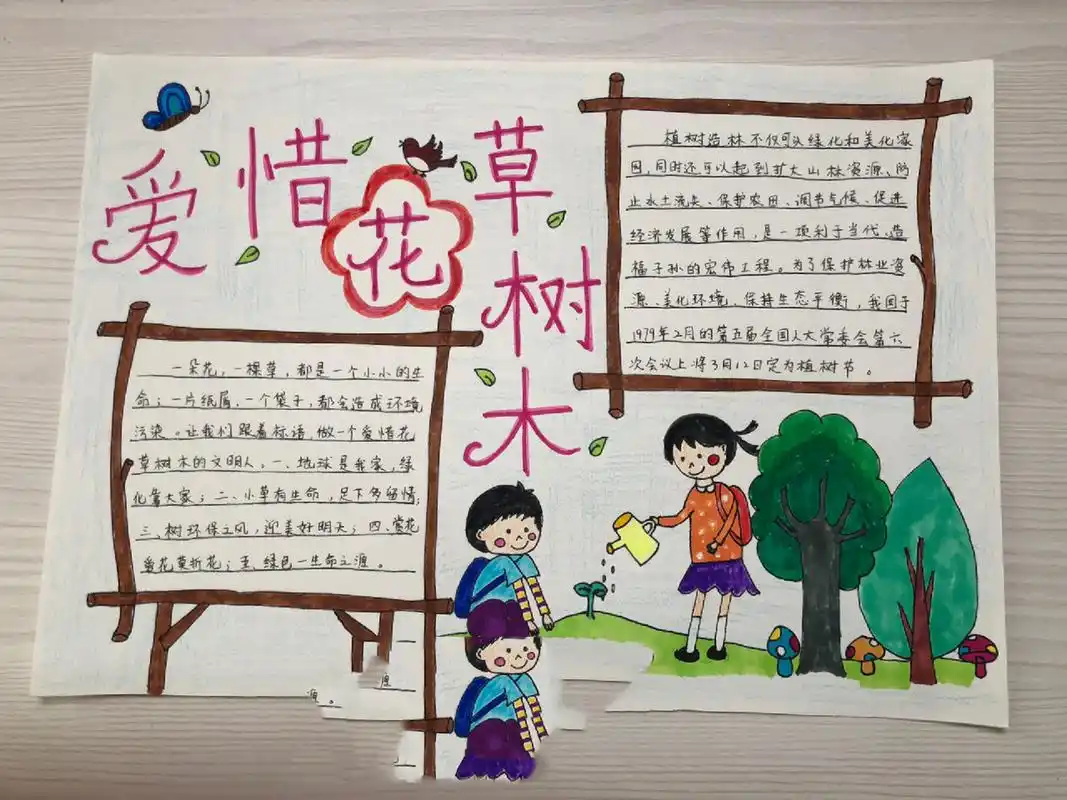 爱惜花草树木
一朵花，一棵草，都是一个小小的生
命；一片纸屑、一个袋子，都会造成环境
污染。让我们跟着标语，做一个爱惜花
草树木的文明人，一、地球是我家，绿
化靠大家；二、小草有生命，足下多留情；
三、树环保之风，迎美好明天；四、赏花
爱花莫折花；五、绿色一生命之源。
源。
源
植树造林不仅可以绿化和美化家
园，同时还可以起到扩大山林资源、防
止水土流失、保护农田、调节气候、促进
经济发展等作用，是一项利于当代、造
福子孙的宏伟工程。为了保护林业资
源、美化环境、保持生态平衡，我国于
1979年2月的第五届全国人大常委会第六
次会议上将3月12日定为植树节。